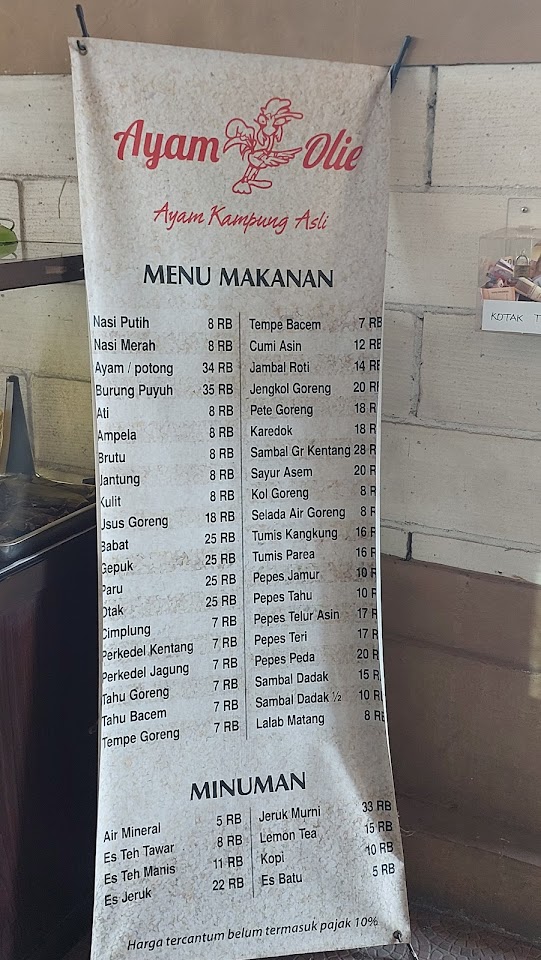 Ayam Olie
Ayam Kampung Asli
MENU MAKANAN
Nasi Putih 8 RB
Nasi Merah 8 RB
Ayam / potong 34 RB
Burung Puyuh 35 RB
Ati 8 RB
Ampela 8 RB
Brutu 8 RB
Jantung 8 RB
Kulit 8 RB
Usus Goreng 18 RB
Babat 25 RB
Gepuk 25 RB
Paru 25 RB
Otak 25 RB
Cimplung 7 RB
Perkedel Kentang 7 RB
Perkedel Jagung 7 RB
Tahu Goreng 7 RB
Tahu Bacem 7 RB
Tempe Goreng 7 RB
Tempe Bacem 7 RB
Cumi Asin 12 RB
Jambal Roti 14 RB
Jengkol Goreng 20 RB
Pete Goreng 18 R
Karedok 18 R
Sambal Gr Kentang 28 R
Sayur Asem 20 R
Kol Goreng 8 R
Selada Air Goreng 8 R
Tumis Kangkung 16 R
Tumis Parea 16 R
Pepes Jamur 10 R
Pepes Tahu 10 R
Pepes Telur Asin 17 R
Pepes Teri 17 R
Pepes Peda 20 R
Sambal Dadak 15 R
Sambal Dadak ½ 10 R
Lalab Matang 8 RB
MINUMAN
Air Mineral 5 RB
Es Teh Tawar 8 RB
Es Teh Manis 11 RB
Es Jeruk 22 RB
Jeruk Murni 33 RB
Lemon Tea 15 RB
Kopi 10 RB
Es Batu 5 RB
Harga tercantum belum termasuk pajak 10%
KOTAK T